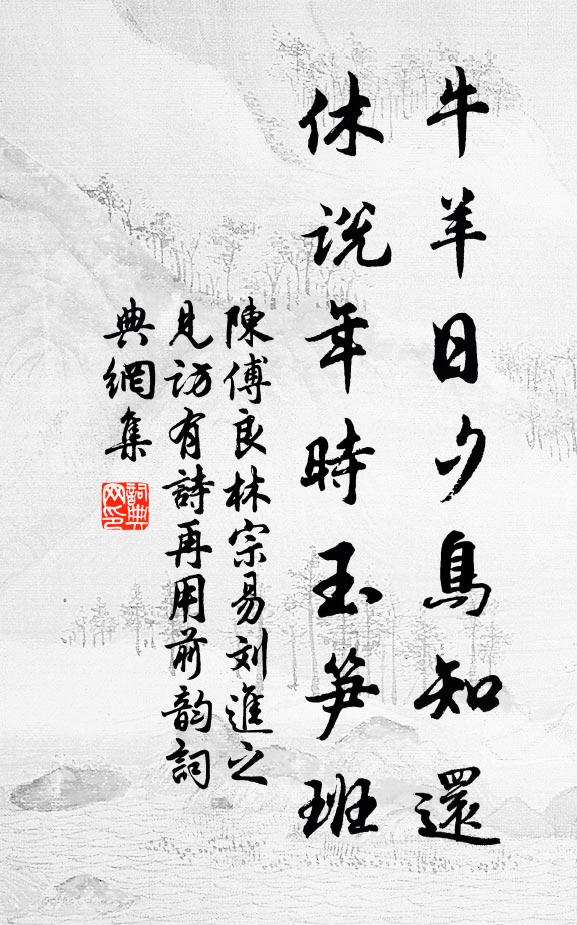 牛羊日夕鳥知還
休说年時玉笋班
陳傅良林宗易刘進之
見訪有詩再用前韵詞
典網集
詞典网印